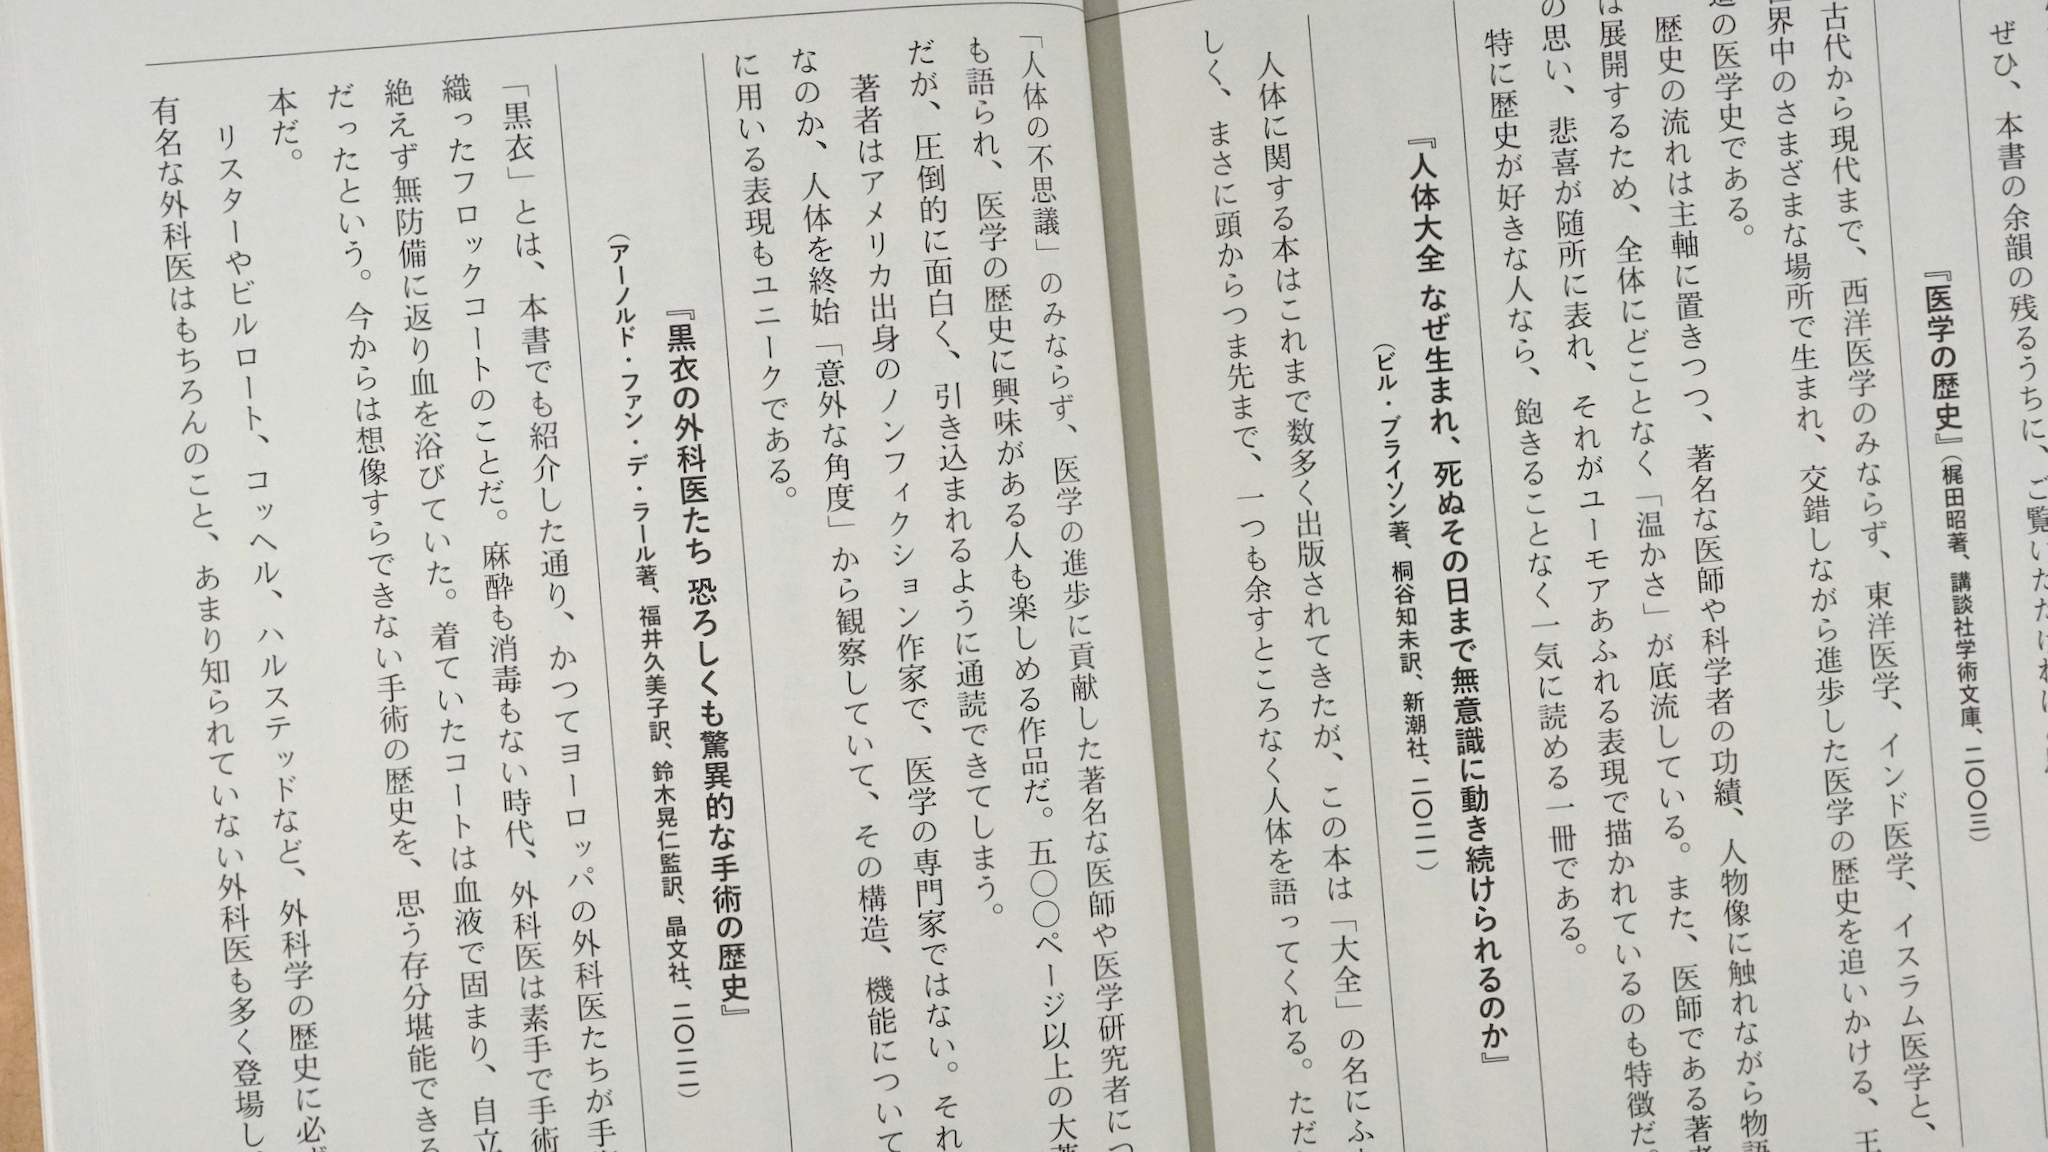 ぜひ、本書の余韻の残るうちに、ご覧いただければ
『医学の歴史』（梶田昭著、講談社学術文庫、二〇〇三）
古代から現代まで、西洋医学のみならず、東洋医学、インド医学、イスラム医学と、
界中のさまざまな場所で生まれ、交錯しながら進歩した医学の歴史を追いかける、王
道の医学史である。
歴史の流れは主軸に置きつつ、著名な医師や科学者の功績、人物像に触れながら物語
は展開するため、全体にどことなく「温かさ」が底流している。また、医師である著者
の思い、悲喜が随所に表れ、それがユーモアあふれる表現で描かれているのも特徴だ。
特に歴史が好きな人なら、飽きることなく一気に読める一冊である。
『人体大全 なぜ生まれ、死ぬその日まで無意識に動き続けられるのか』
（ビル・ブライソン著、桐谷知未訳、新潮社、二〇二一）
人体に関する本はこれまで数多く出版されてきたが、この本は「大全」の名にふ
しく、まさに頭からつま先まで、一つも余すところなく人体を語ってくれる。ただ
「人体の不思議」のみならず、医学の進歩に貢献した著名な医師や医学研究者につ
も語られ、医学の歴史に興味がある人も楽しめる作品だ。五〇〇ページ以上の大著
だが、圧倒的に面白く、引き込まれるように通読できてしまう。
著者はアメリカ出身のノンフィクション作家で、医学の専門家ではない。それ
なのか、人体を終始「意外な角度」から観察していて、その構造、機能について
に用いる表現もユニークである。
『黒衣の外科医たち 恐ろしくも驚異的な手術の歴史』
（アーノルド・ファン・デ・ラール著、福井久美子訳、鈴木晃仁監訳、晶文社、二〇二二）
「黒衣」とは、本書でも紹介した通り、かつてヨーロッパの外科医たちが手
織ったフロックコートのことだ。麻酔も消毒もない時代、外科医は素手で手術
絶えず無防備に返り血を浴びていた。着ていたコートは血液で固まり、自立
だったという。今からは想像すらできない手術の歴史を、思う存分堪能できる
本だ。
リスターやビルロート、コッヘル、ハルステッドなど、外科学の歴史に必ず
有名な外科医はもちろんのこと、あまり知られていない外科医も多く登場し